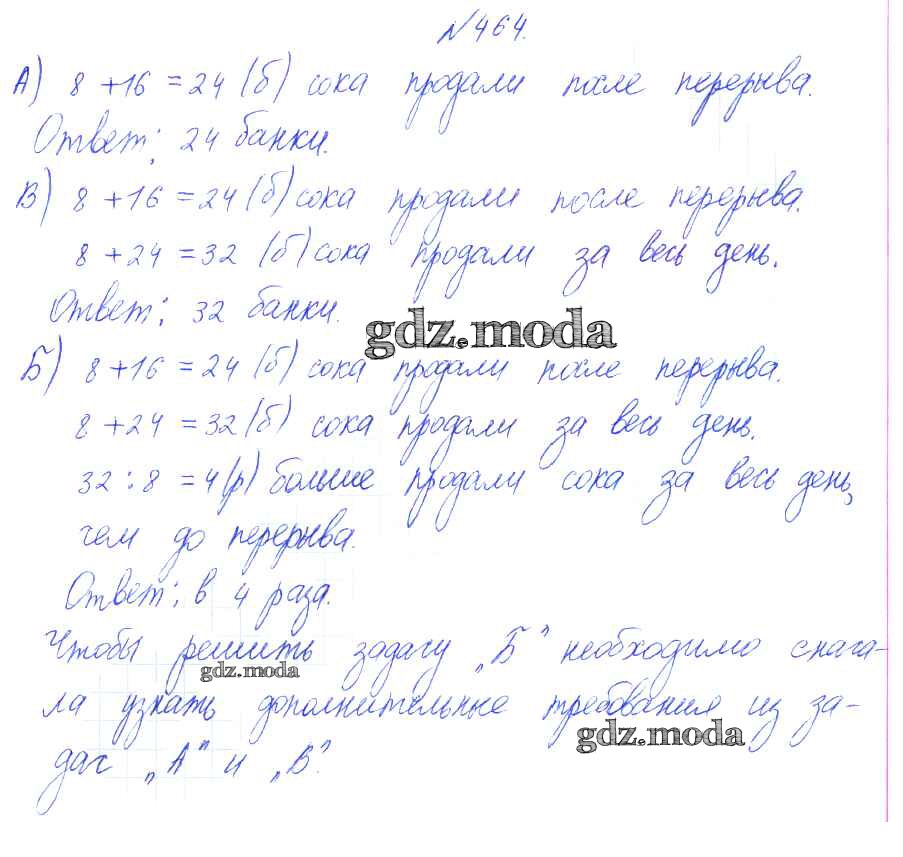 №464.
А) 8 + 16 = 24 (б) сока продали после перерыва.
Ответ: 24 банки.
В) 8 + 16 = 24 (б) сока продали после перерыва.
8 + 24 = 32 (б) сока продали за весь день.
Ответ: 32 банки.
gdz.moda
Б) 8 + 16 = 24 (б) сока продали после перерыва.
8 + 24 = 32 (б) сока продали за весь день.
32 : 8 = 4 (р) больше продали сока за весь день,
чем до перерыва.
Ответ: в 4 раза.
Чтобы решить задачу „Б" необходимо снача-
gdz.moda
ла узнать дополнительные требования из за-
gdz.moda
дач „А" и „В".